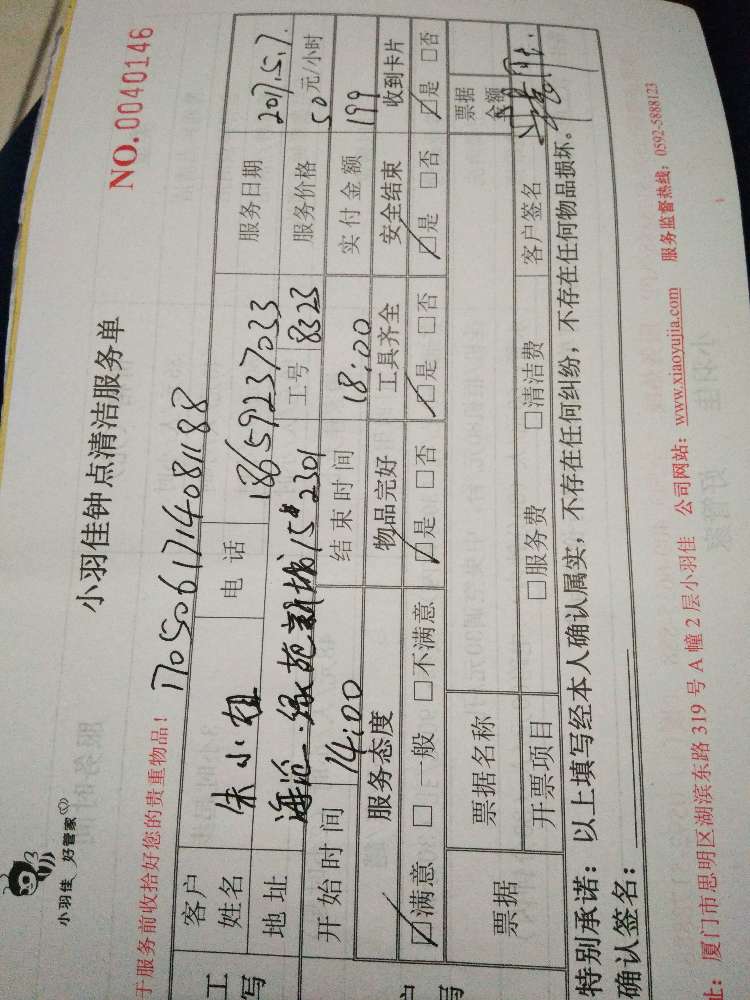 小羽佳 好管家
小羽佳钟点清洁服务单
NO.0040146
于服务前收拾好您的贵重物品!
1705061714081188
客户姓名 朱小姐 电话 18659237033 服务日期 2017.5.7.
地址 海沧·绿苑新城15#2301 工号 8323 服务价格 50元/小时
开始时间 14:00 结束时间 18:00 实付金额 199
服务态度 物品完好 工具齐全 安全结束 收到卡片
☑满意 □一般 □不满意 ☑是 □否 ☑是 □否 ☑是 □否 ☑是 □否
票据 票据名称 票据金额
开票项目 □服务费 □清洁费 客户签名
特别承诺:以上填写经本人确认属实,不存在任何纠纷,不存在任何物品损坏。
确认签名:
址:厦门市思明区湖滨东路 319 号 A 幢 2 层小羽佳 公司网站:www.xiaoyujia.com 服务监督热线:0592-5888123
工
写
户
写